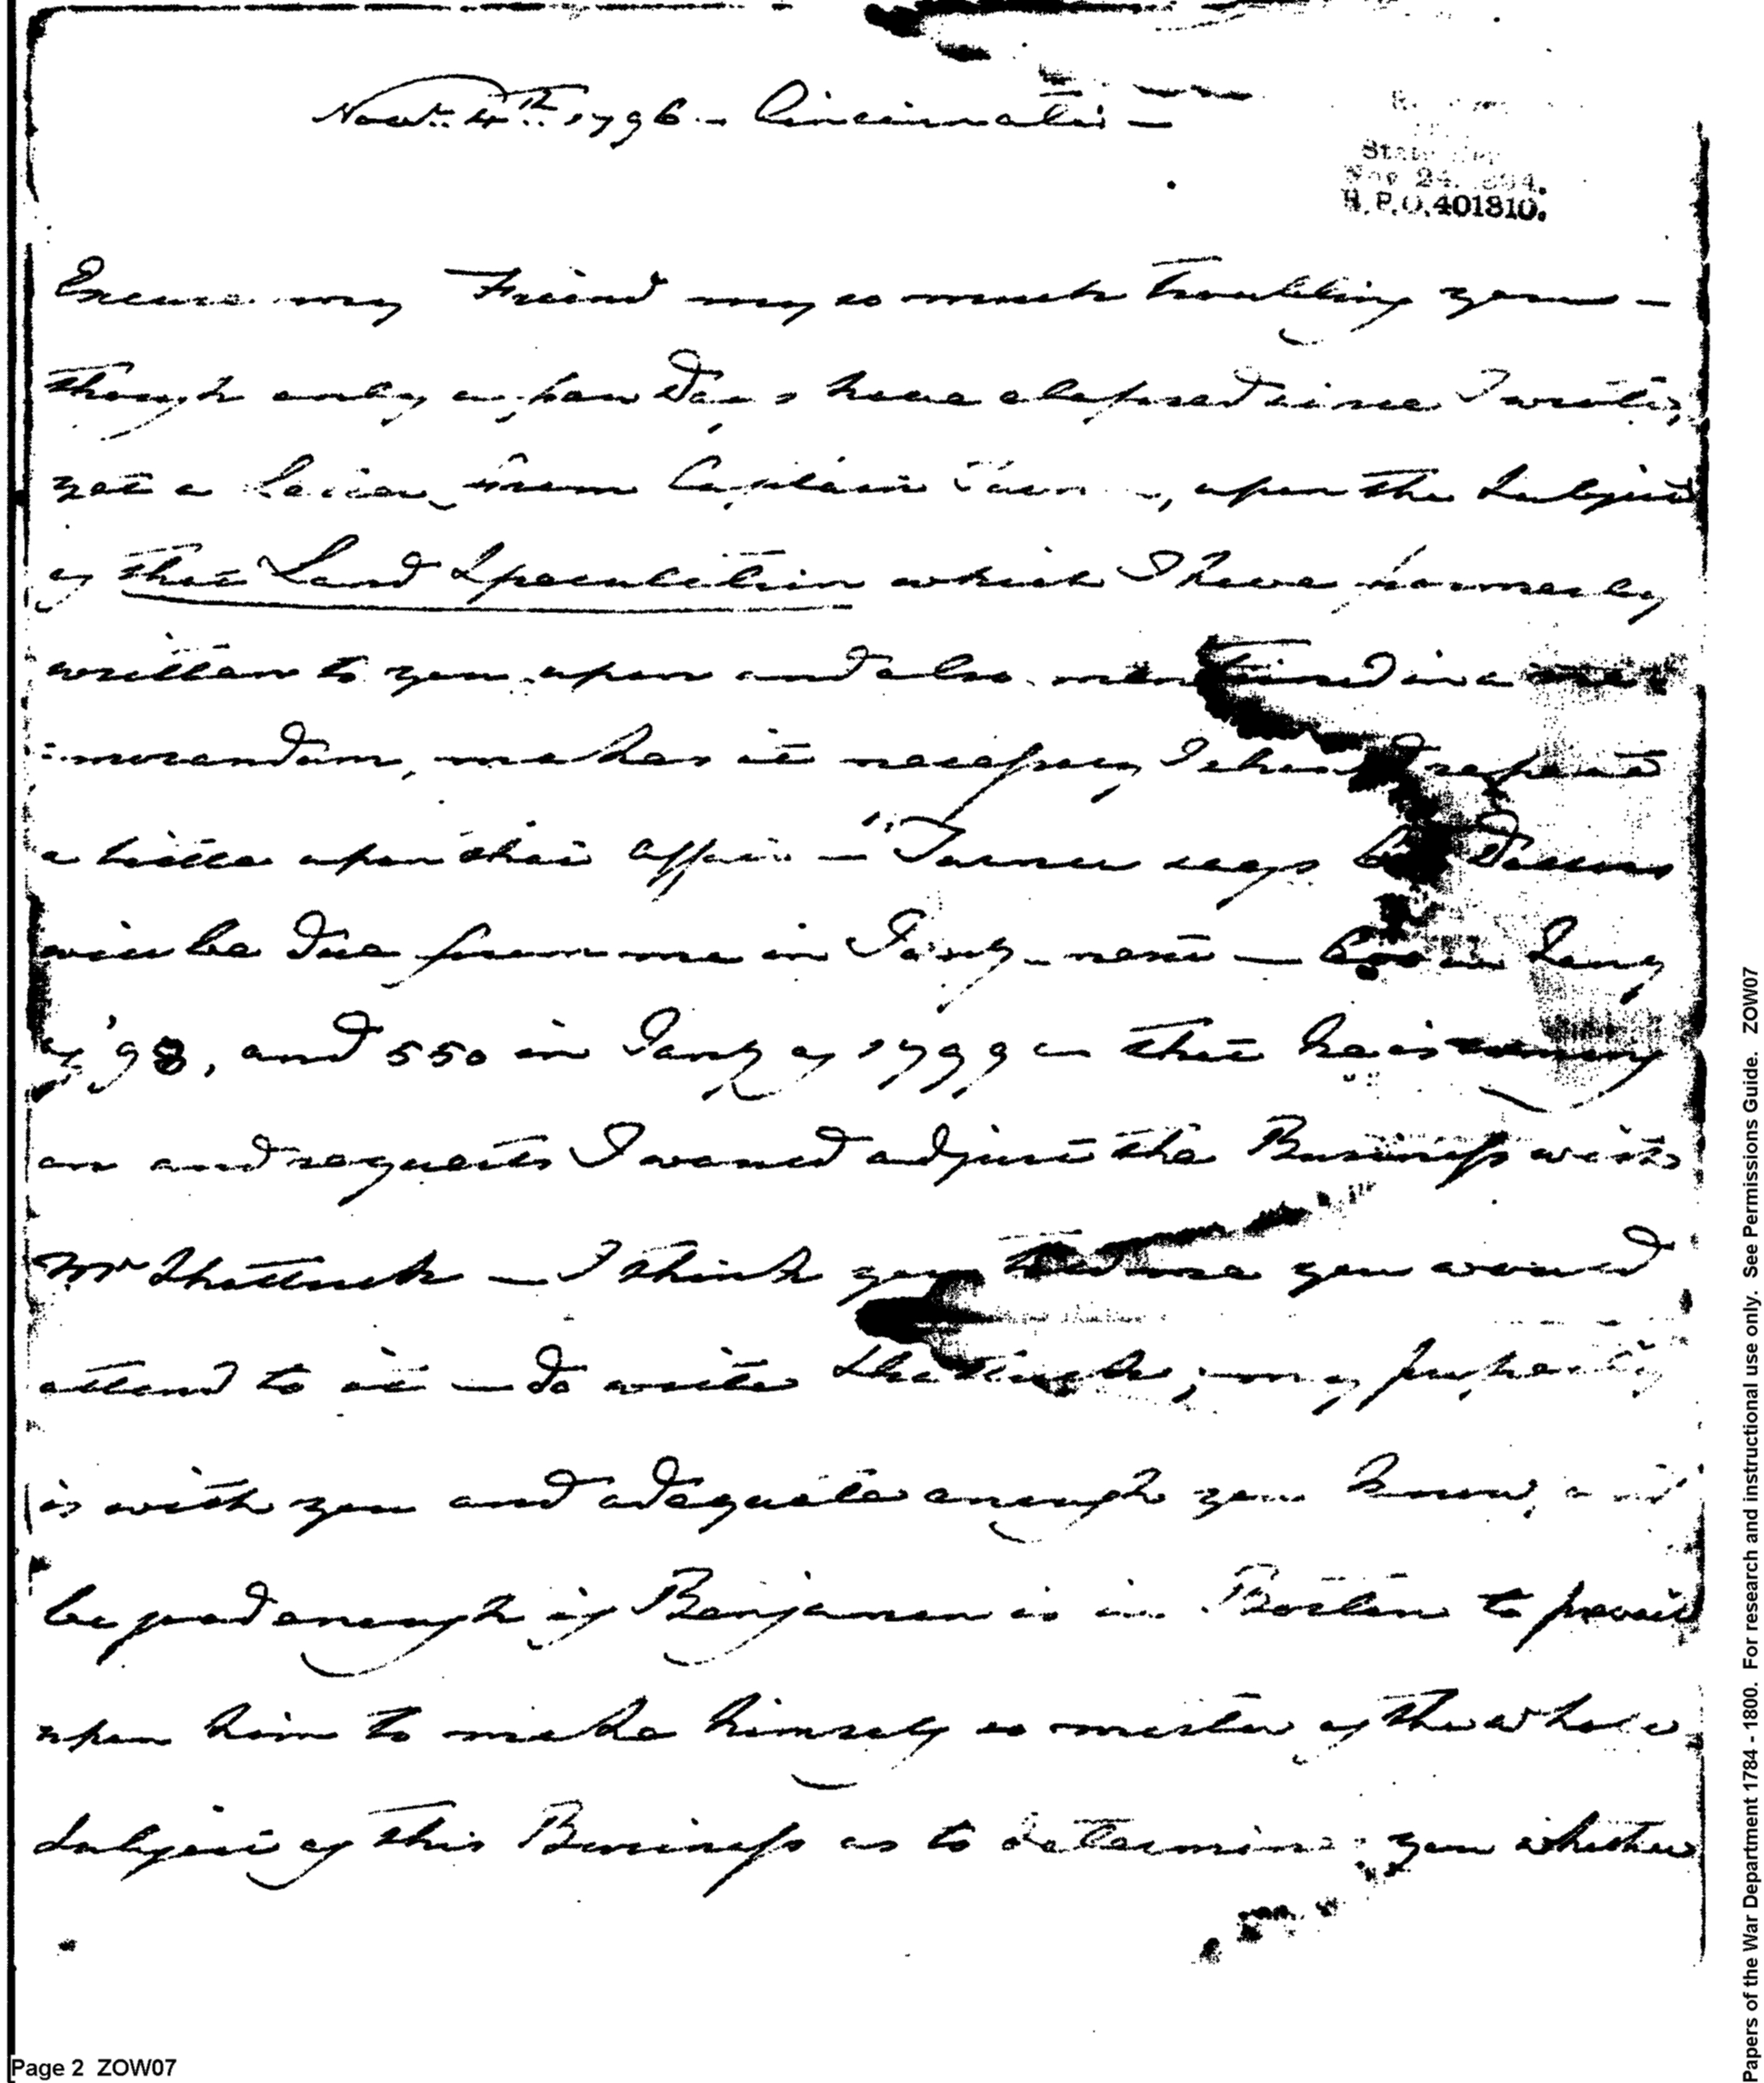 Novr. 4th.. 1796 - Cincinnati -
State Dep
Nov 24, 1894.
R.P.O. 401810.
Excuse my Freind my so much troubling you -
though only a few Days have elapsed since I wrote,
yet a Letter from Captain Turner, upon the Subject
of that Land Speculation which I have formerly
written to you upon and also mentioned in a me-
:morandum, makes it necessary I should repeat
a little upon that affair - "Turner says Dollars
will be due from me in Jany. next - 600 in Jany
of '98, and 550 in Jany of 1799 - that he is coming
on and requests I would adjust the Business with
Mr Shattuck - I think you told me you would
attend to it - do write Shattuck; my property
is with you and adequate enough you know, and
be good enough if Benjamen is in Boston to prevail
upon him to make himself so master of the whole
Subject of this Business as to determine you whether
Page 2 ZOW07
Papers of the War Department 1784 - 1800. For research and instructional use only. See Permissions Guide. ZOW07